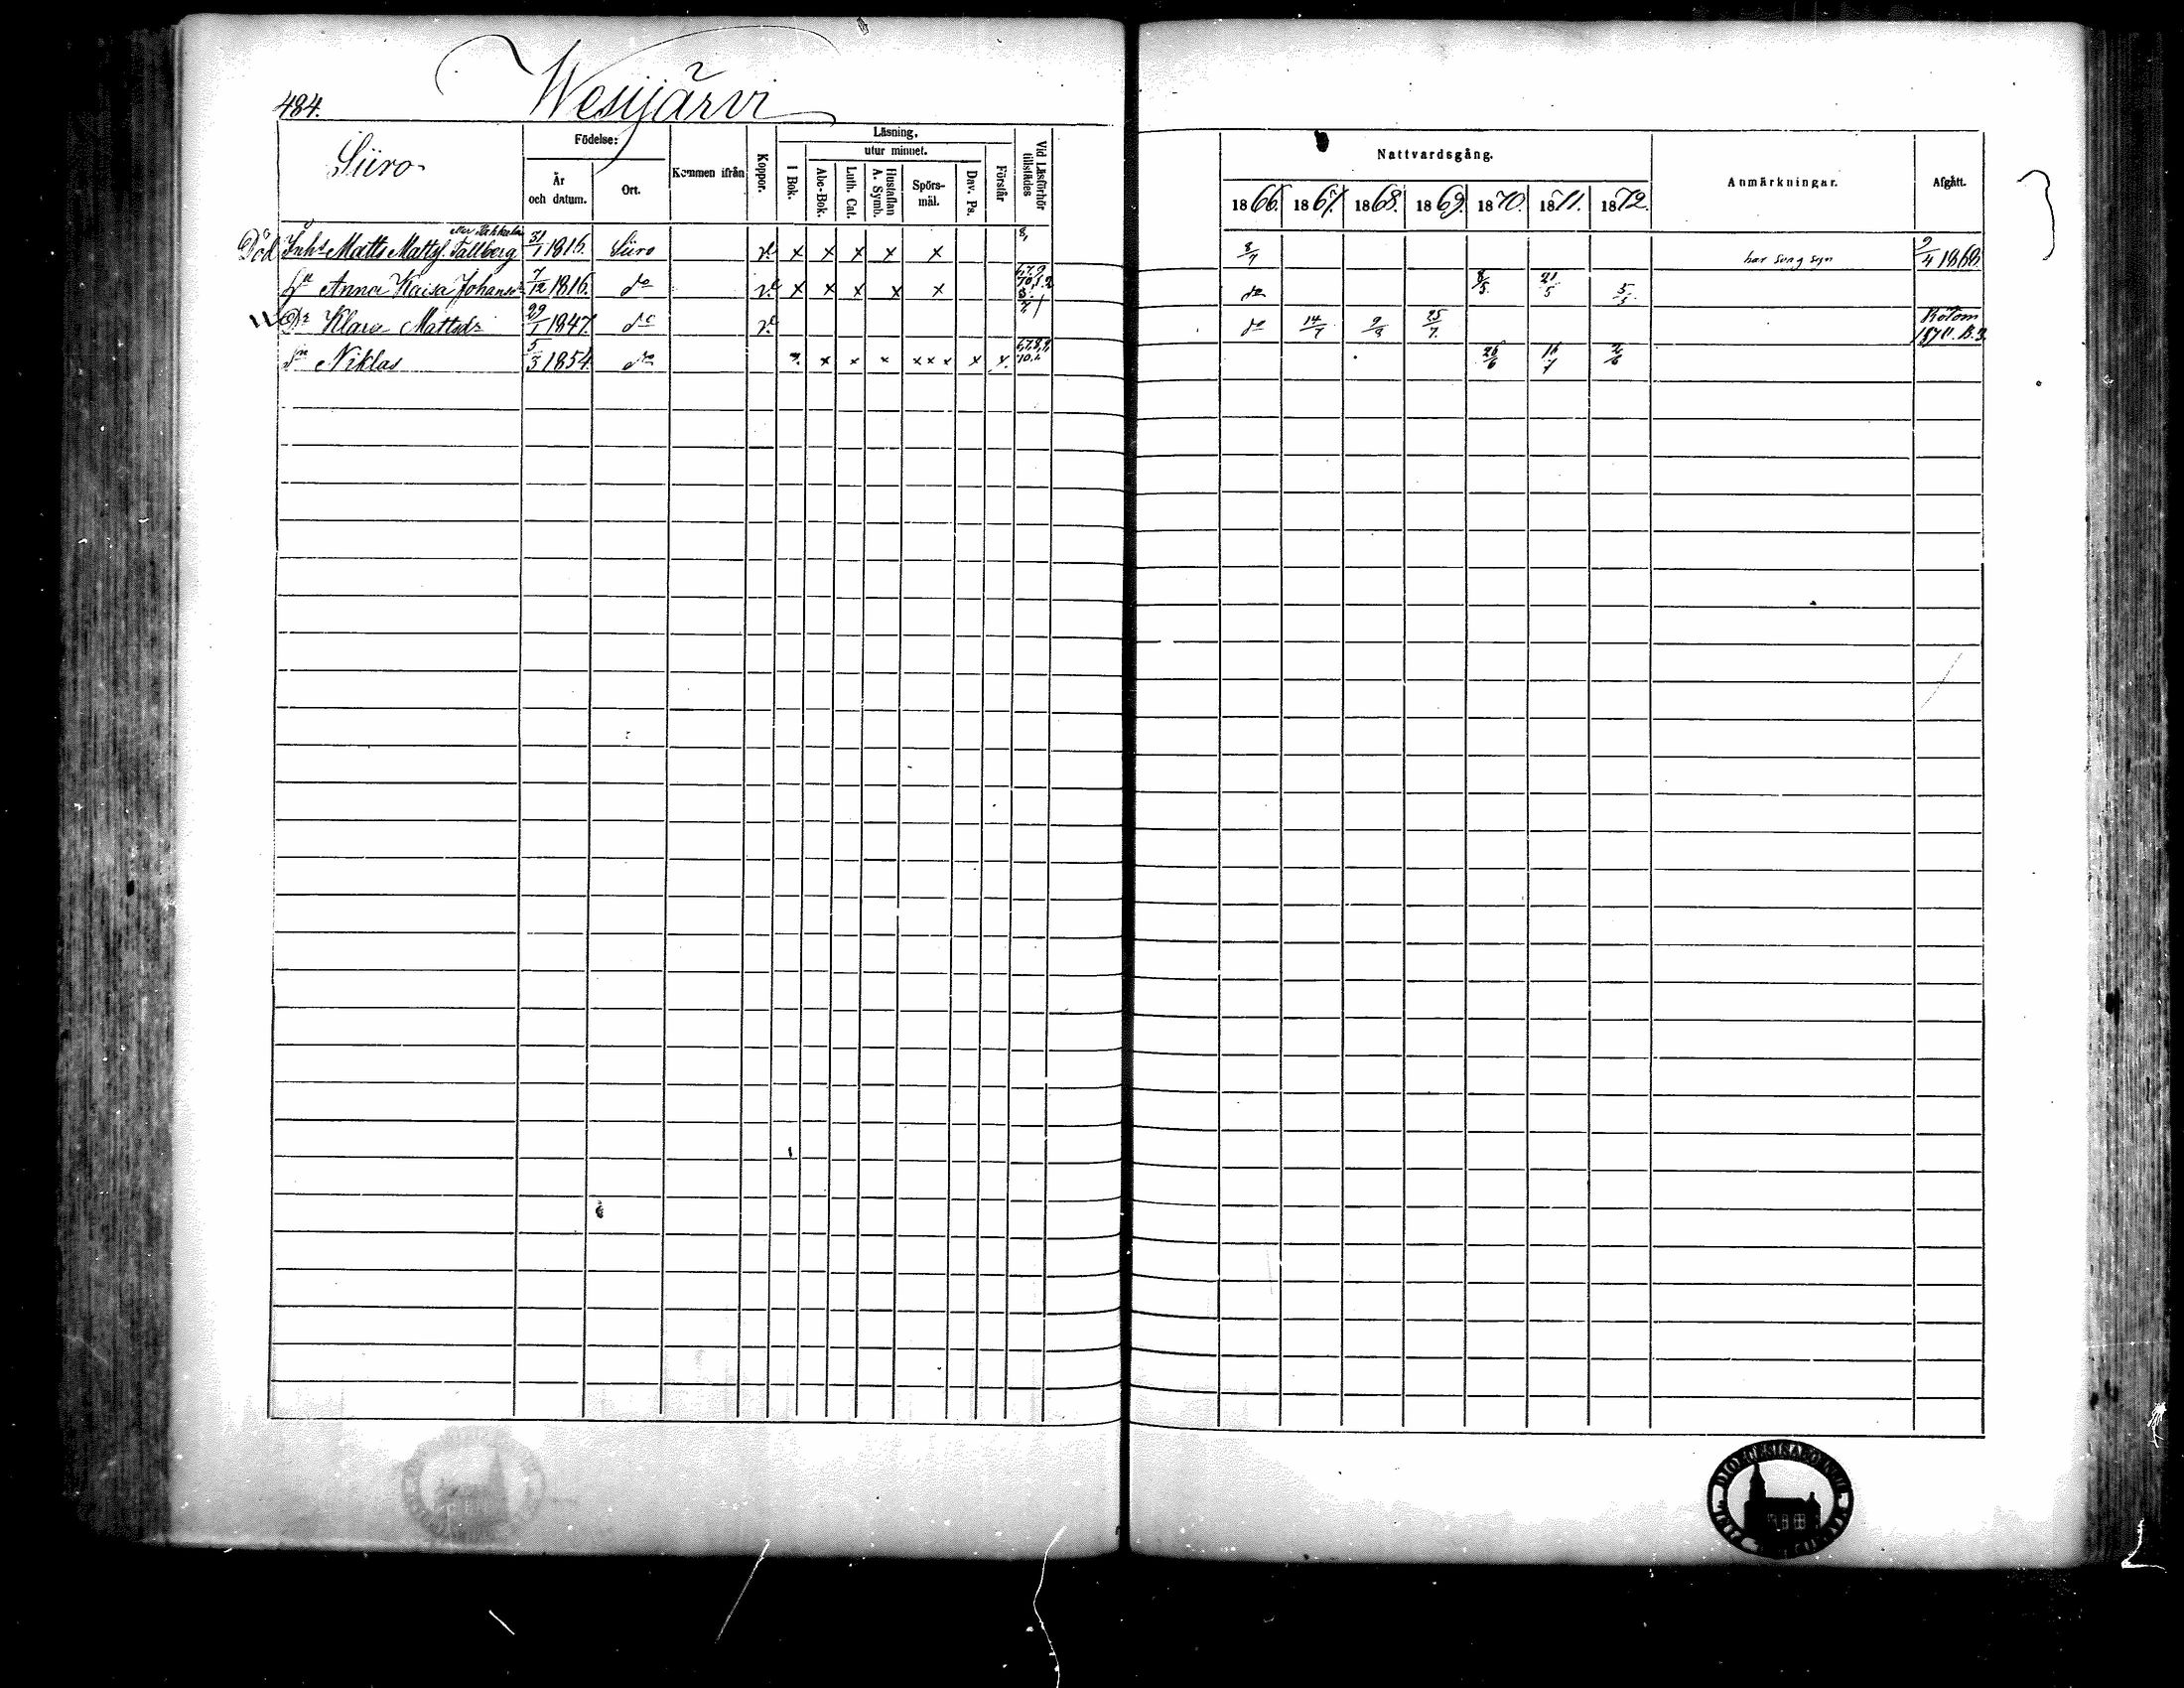 484.
Wesijärvi
Siiro
Födelse:
År och datum.
Ort.
Kommen ifrån
Koppor.
Läsning.
I Bok.
utur minnet.
Abc-Bok.
Luth. Cat.
Hustaflan A. Symb.
Spörs-mål.
Dav. Ps.
Förstår
Vid Läsförhör tillstädes
Nattvardsgång.
1866. 1867. 1868. 1869. 1870. 1871. 1872.
Anmärkningar.
Afgått.
Död Inhs Matts Matts. Tallberg 31/1 1816. Siiro x x x x x 8, 8/7 har svag syn 9/4 1868.
Anna Kaisa Johans 7/12 1816. do x x x x x do 8/5. 21/5 5/5.
Dr Klara Mattsdr 29/1 1847. do do 14/7 9/8 25/7. 1870.
Sn Niklas 5/3 1854. do x x x x x x x x. 26/6 16/7 2/6